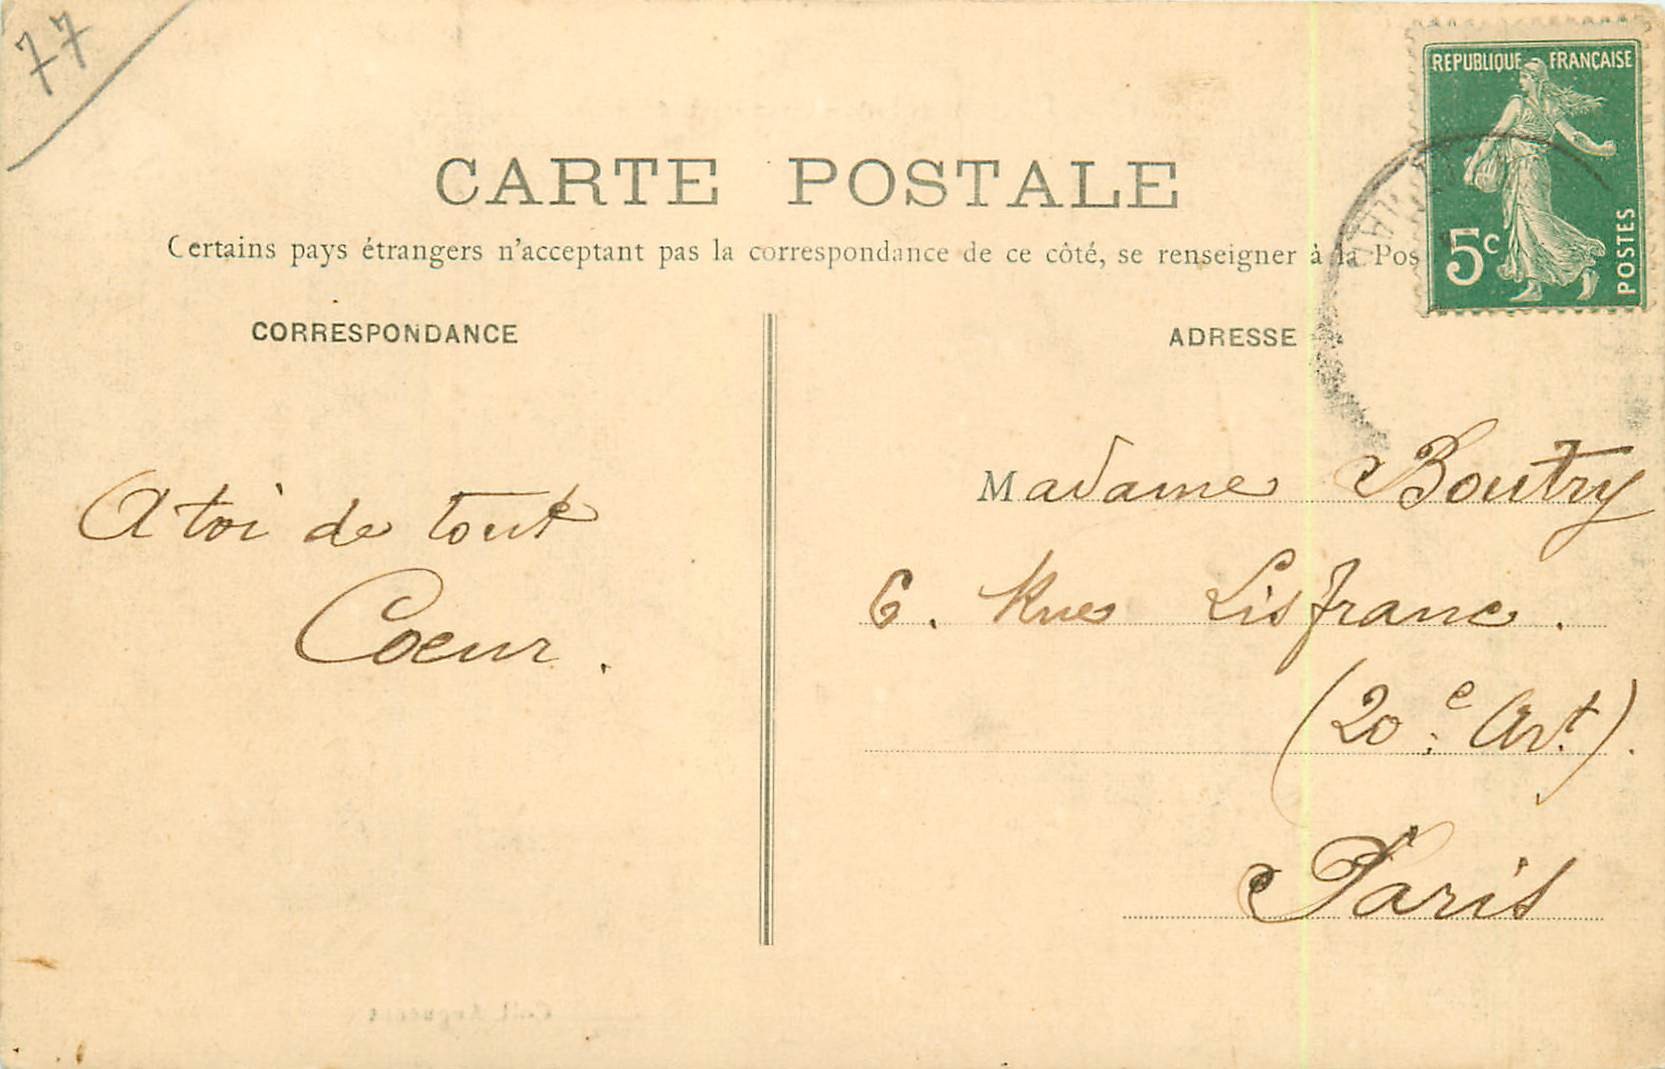 77
CARTE POSTALE
Certains pays étrangers n'acceptant pas la correspondance de ce côté, se renseigner à la Pos
REPUBLIQUE FRANÇAISE
5c
POSTES
CORRESPONDANCE
A toi de tout
Coeur.
ADRESSE
Madame Boutry
6. Rue Lisfranc.
(20e Art).
Paris